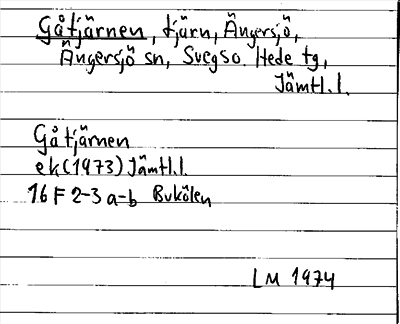 Gåtjärnen, tjärn, Ängersjö,
Ängersjö sn, Svegso. Hede tg,
Jämtl.l.
Gåtjärnen
ek (1973) Jämtl.l.
16 F 2-3 a-b Bukölen
LM 1974